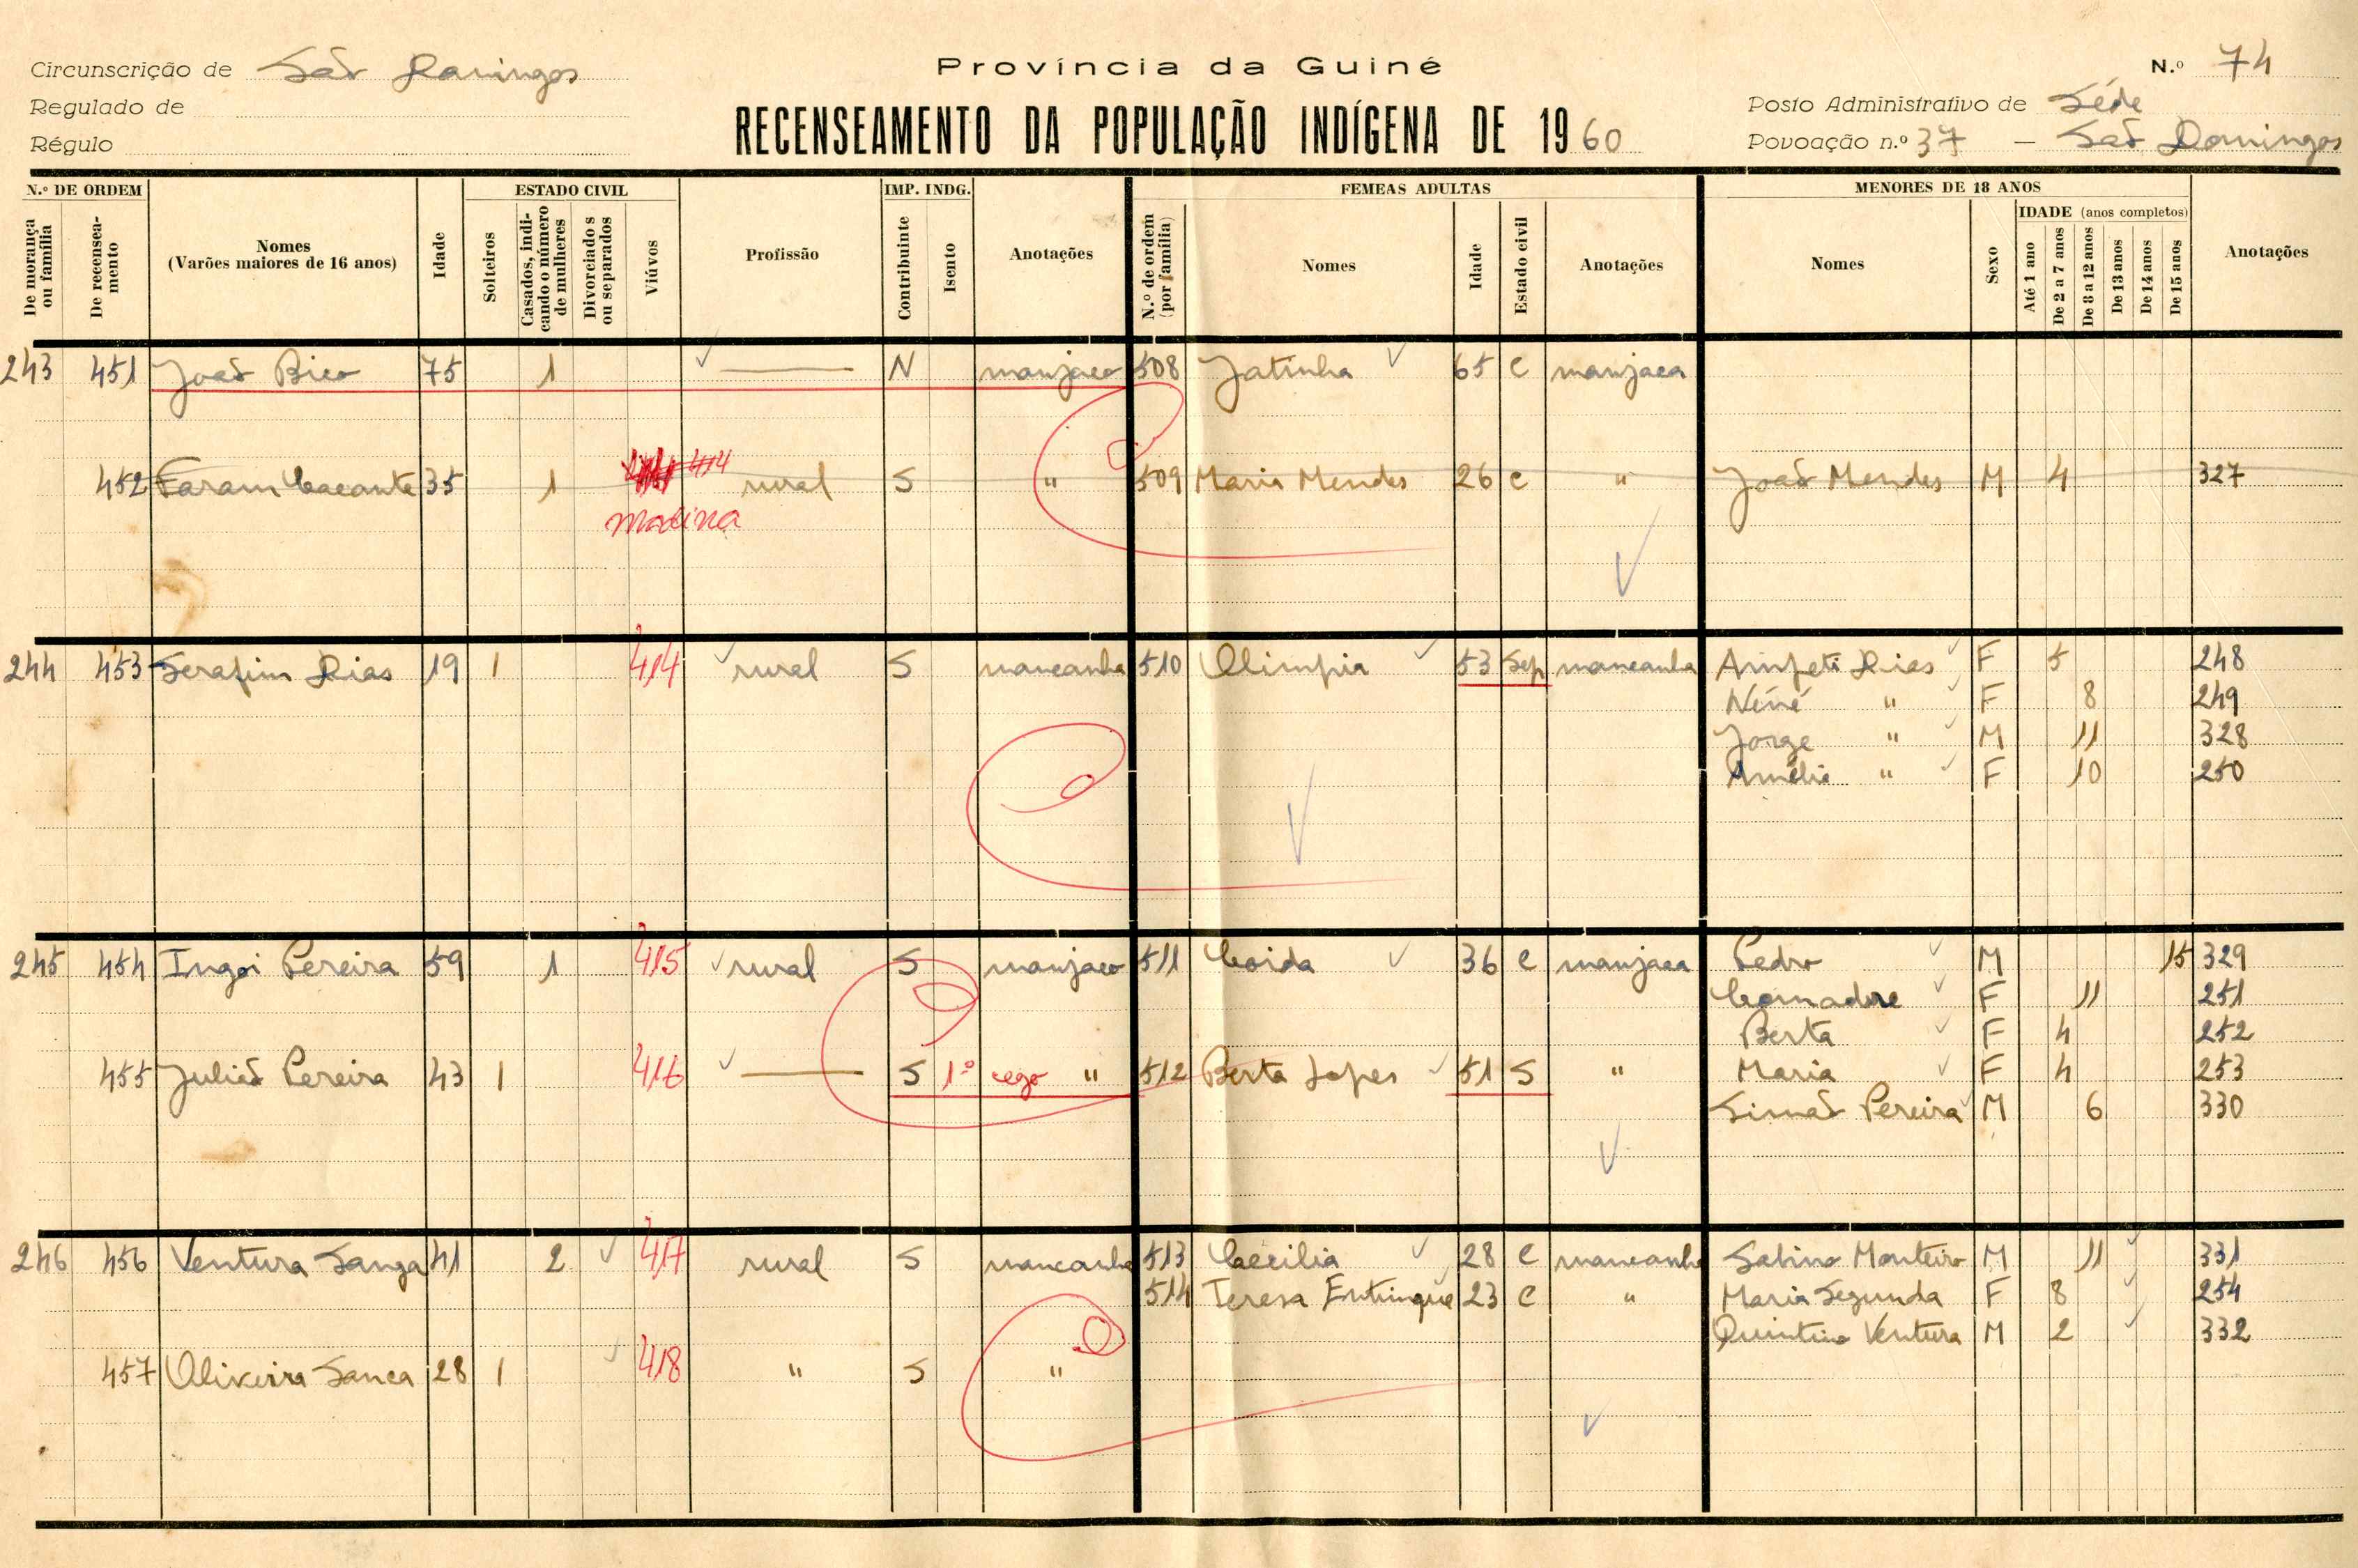 Circunscrição de São Domingos
Província da Guiné
N.º 74
Regulado de
Posto Administrativo de Séde
Régulo
RECENSEAMENTO DA POPULAÇÃO INDÍGENA DE 1960
Povoação n.º 37 — São Domingos
N.º DE ORDEM
ESTADO CIVIL
IMP. INDG.
FEMEAS ADULTAS
MENORES DE 18 ANOS
De morança ou família
De recensea-mento
Nomes
(Varões maiores de 16 anos)
Idade
Solteiros
Casados, indi-cando o número de mulheres
Divorciados ou separados
Viúvos
Profissão
Contribuinte
Isento
Anotações
N.º de ordem (por família)
Nomes
Idade
Estado civil
Anotações
Nomes
Sexo
IDADE (anos completos)
Até 1 ano
De 2 a 7 anos
De 8 a 12 anos
De 13 anos
De 14 anos
De 15 anos
Anotações
243 451 João Bico 75 1 — N manjaco 508 Jatinha 65 C manjaca
414
452 Faram Cacante 35 1 rural S " 509 Maria Mendes 26 C " João Mendes M 4 327
Madina
244 453 Serafim Dias 19 1 414 rural S mancanha 510 Olimpia 53 Sep mancanha Ampeti Dias F 5 248
Néné " F 8 249
Jorge " M 11 328
Amélia " F 10 250
245 454 Ingoi Pereira 59 1 415 rural S manjaco 511 Coida 36 C manjaca Pedro M 15 329
Comadre F 11 251
Berta F 4 252
455 Julião Pereira 43 1 416 — S 1º cego " 512 Berta Lopes 51 S " Maria F 4 253
Simão Pereira M 6 330
246 456 Ventura Sanga 41 2 417 rural S mancanha 513 Cecilia 28 C mancanha Sabino Monteiro M 11 331
514 Teresa Entringue 23 C " Maria Segunda F 8 254
Quintino Ventura M 2 332
457 Oliveira Sanca 28 1 418 " S "